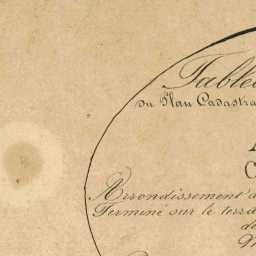 Table
du Plan Cadastra
C
Arrondissement d
Terminé sur le terra
de